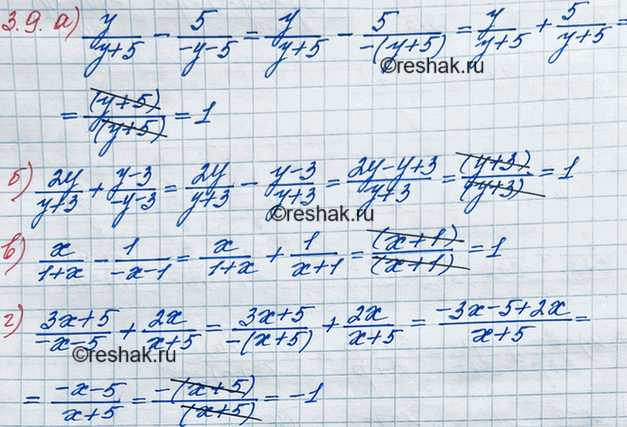 3.9. а) y/(y+5) − 5/(−y−5) = y/(y+5) − 5/(−(y+5)) = y/(y+5) + 5/(y+5) =
©reshak.ru
= (y+5)/(y+5) = 1
б) 2y/(y+3) + (y−3)/(−y−3) = 2y/(y+3) − (y−3)/(y+3) = (2y−y+3)/(y+3) = (y+3)/(y+3) = 1
©reshak.ru
в) x/(1+x) − 1/(−x−1) = x/(1+x) + 1/(x+1) = (x+1)/(x+1) = 1
г) (3x+5)/(−x−5) + 2x/(x+5) = (3x+5)/(−(x+5)) + 2x/(x+5) = (−3x−5+2x)/(x+5) =
©reshak.ru
= (−x−5)/(x+5) = −(x+5)/(x+5) = −1